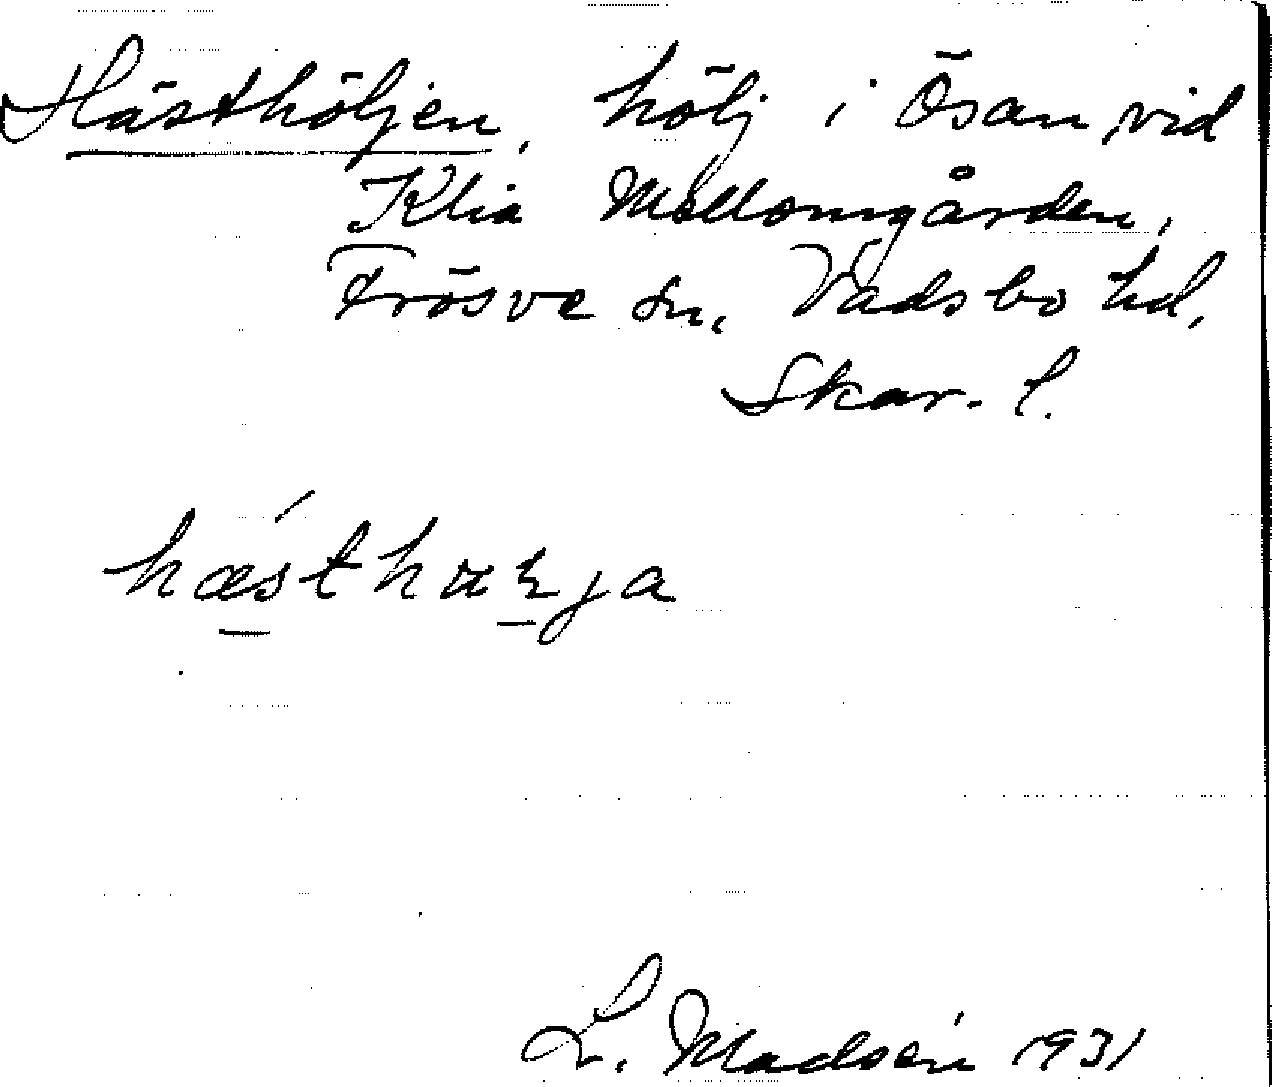 Hästhöljen, hölj i Ösan vid
Klia Mellomgården,
Frösve sn, Vadsbo hd,
Skar. l.
hæsthαꞎja
L. Madsén 1931